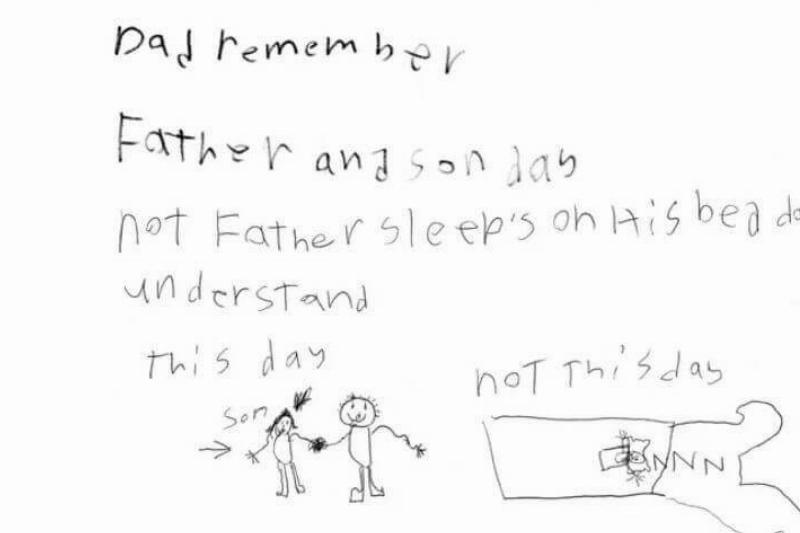 Dad remember
Father and son day
not Father sleep's on His bed da
understand
this day
not This day
son
NNN